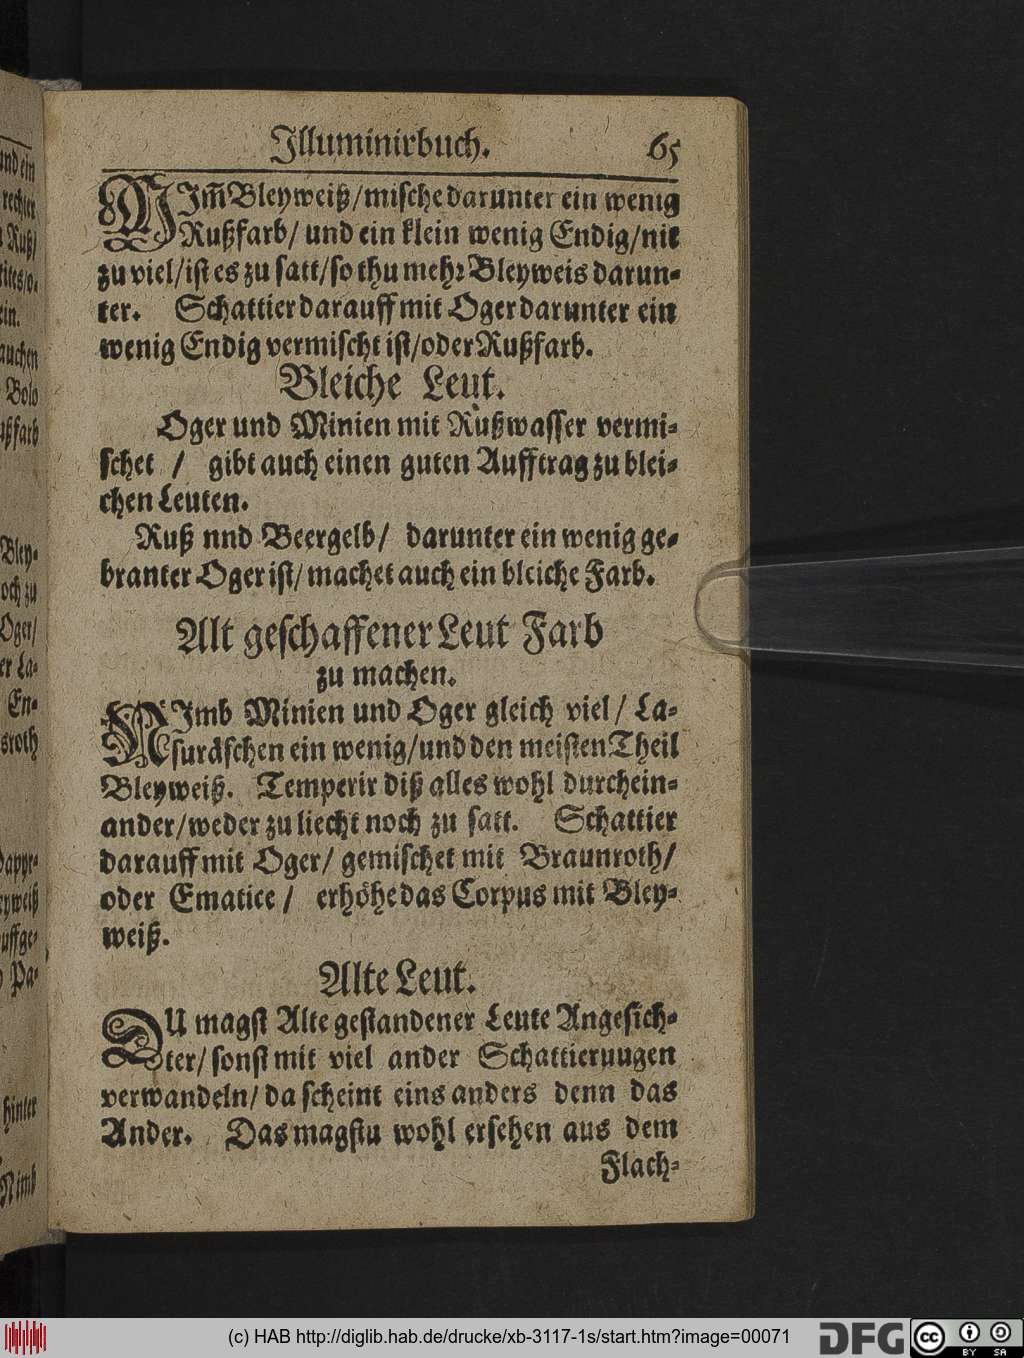 Illuminirbuch. 65
NIm̃ Bleyweiß/ mische darunter ein wenig
Rußfarb/ und ein klein wenig Endig/ nit
zu viel/ ist es zu satt/ so thu mehr Bleyweis darun-
ter. Schattier darauff mit Oger darunter ein
wenig Endig vermischt ist/ oder Rußfarb.
Bleiche Leut.
Oger und Minien mit Rußwasser vermi-
schet / gibt auch einen guten Aufftrag zu blei-
chen Leuten.
Ruß nnd Beergelb/ darunter ein wenig ge-
branter Oger ist/ machet auch ein bleiche Farb.
Alt geschaffener Leut Farb
zu machen.
NImb Minien und Oger gleich viel/ La-
suräschen ein wenig/ und den meisten Theil
Bleyweiß. Temperir diß alles wohl durchein-
ander/ weder zu liecht noch zu satt. Schattier
darauff mit Oger/ gemischet mit Braunroth/
oder Ematice / erhöhe das Corpus mit Bley-
weiß.
Alte Leut.
DU magst Alte gestandener Leute Angesich-
ter/ sonst mit viel ander Schattieruugen
verwandeln/ da scheint eins anders denn das
Ander. Das magstu wohl ersehen aus dem
Flach-
(c) HAB http://diglib.hab.de/drucke/xb-3117-1s/start.htm?image=00071
DFG
cc BY SA